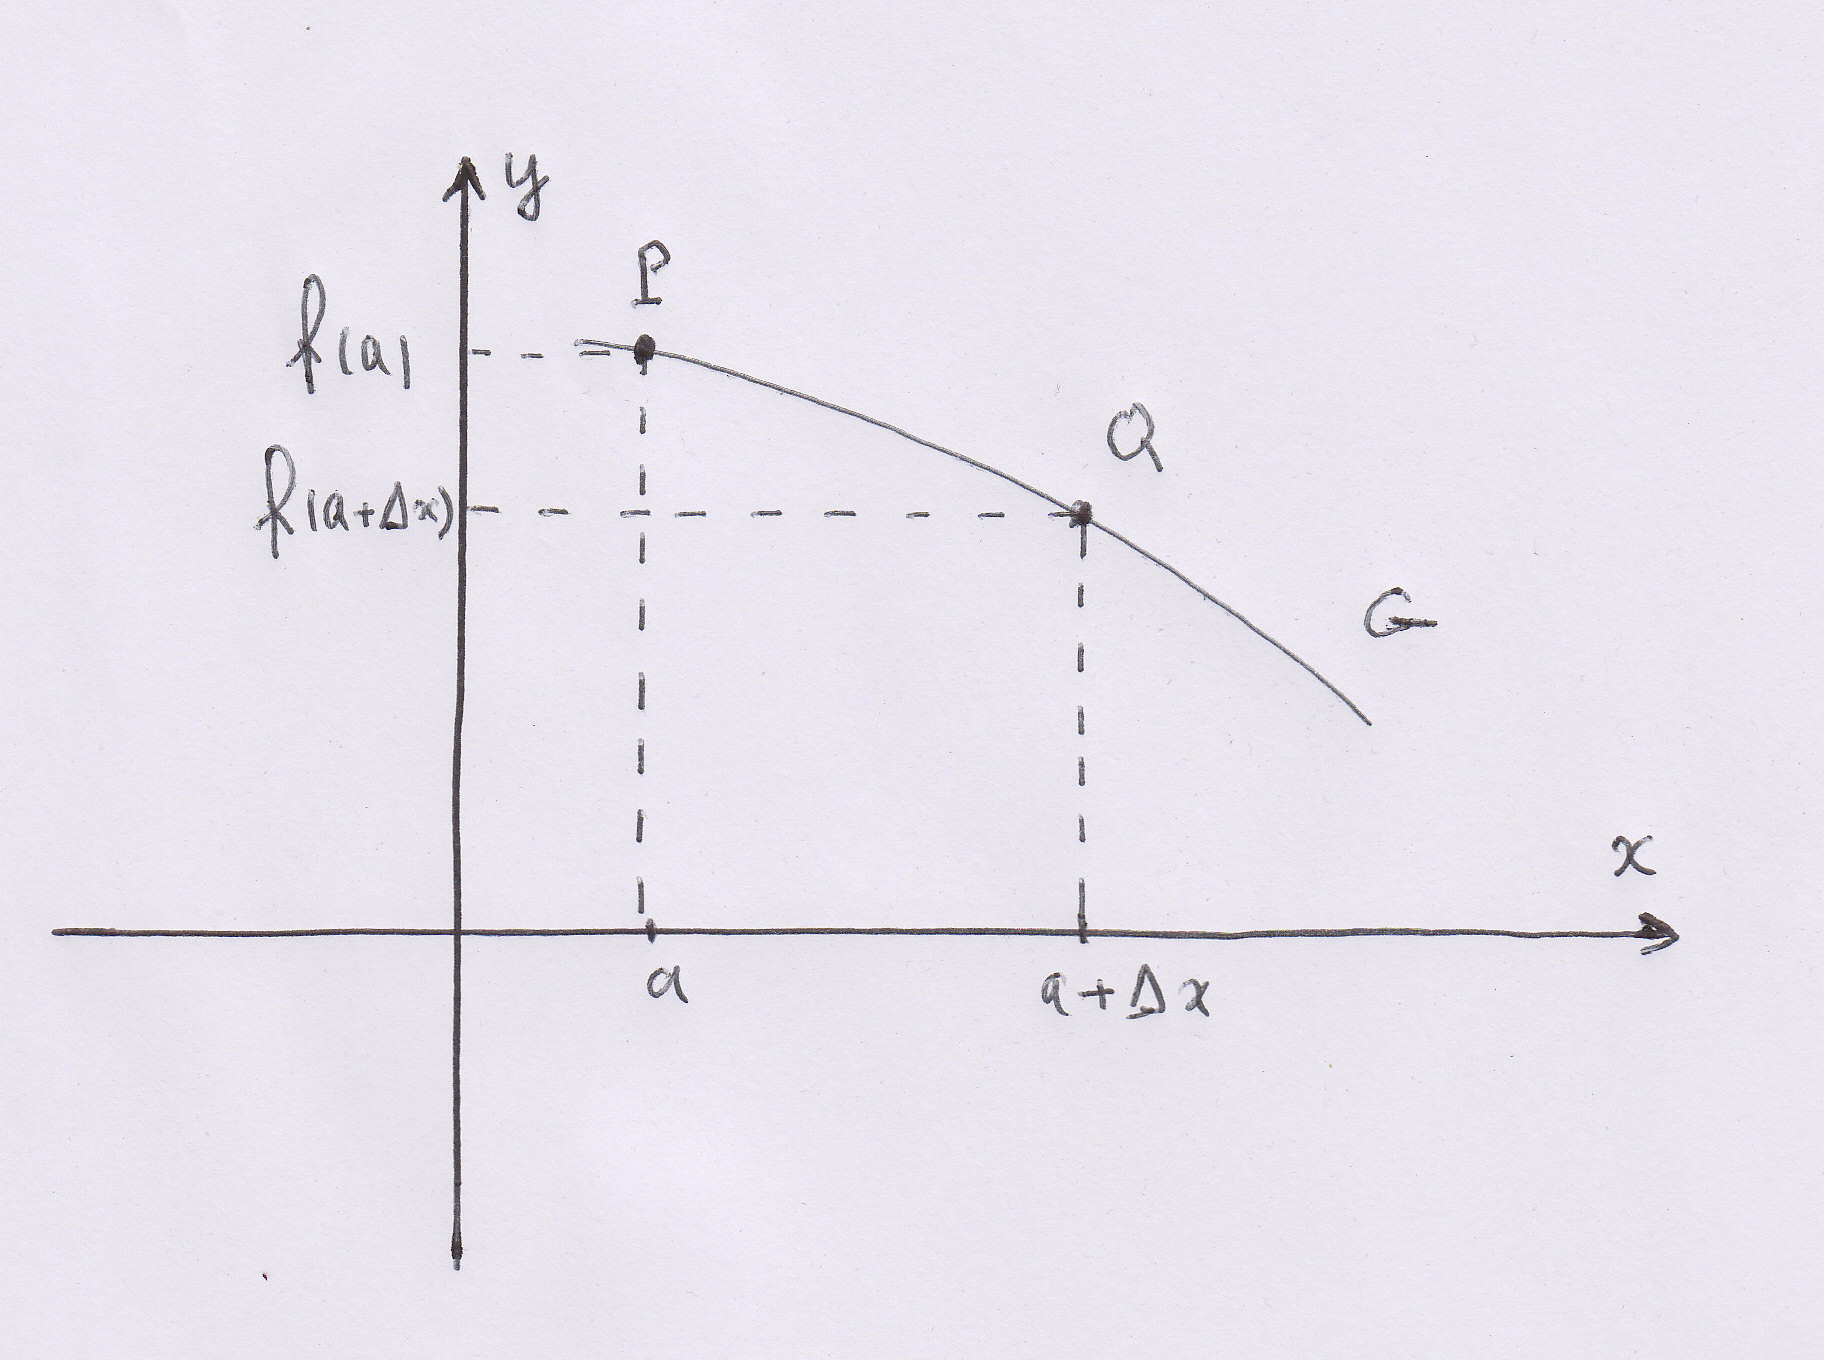 y
P
f(a)
Q
f(a+Δx)
G
x
a
a+Δx